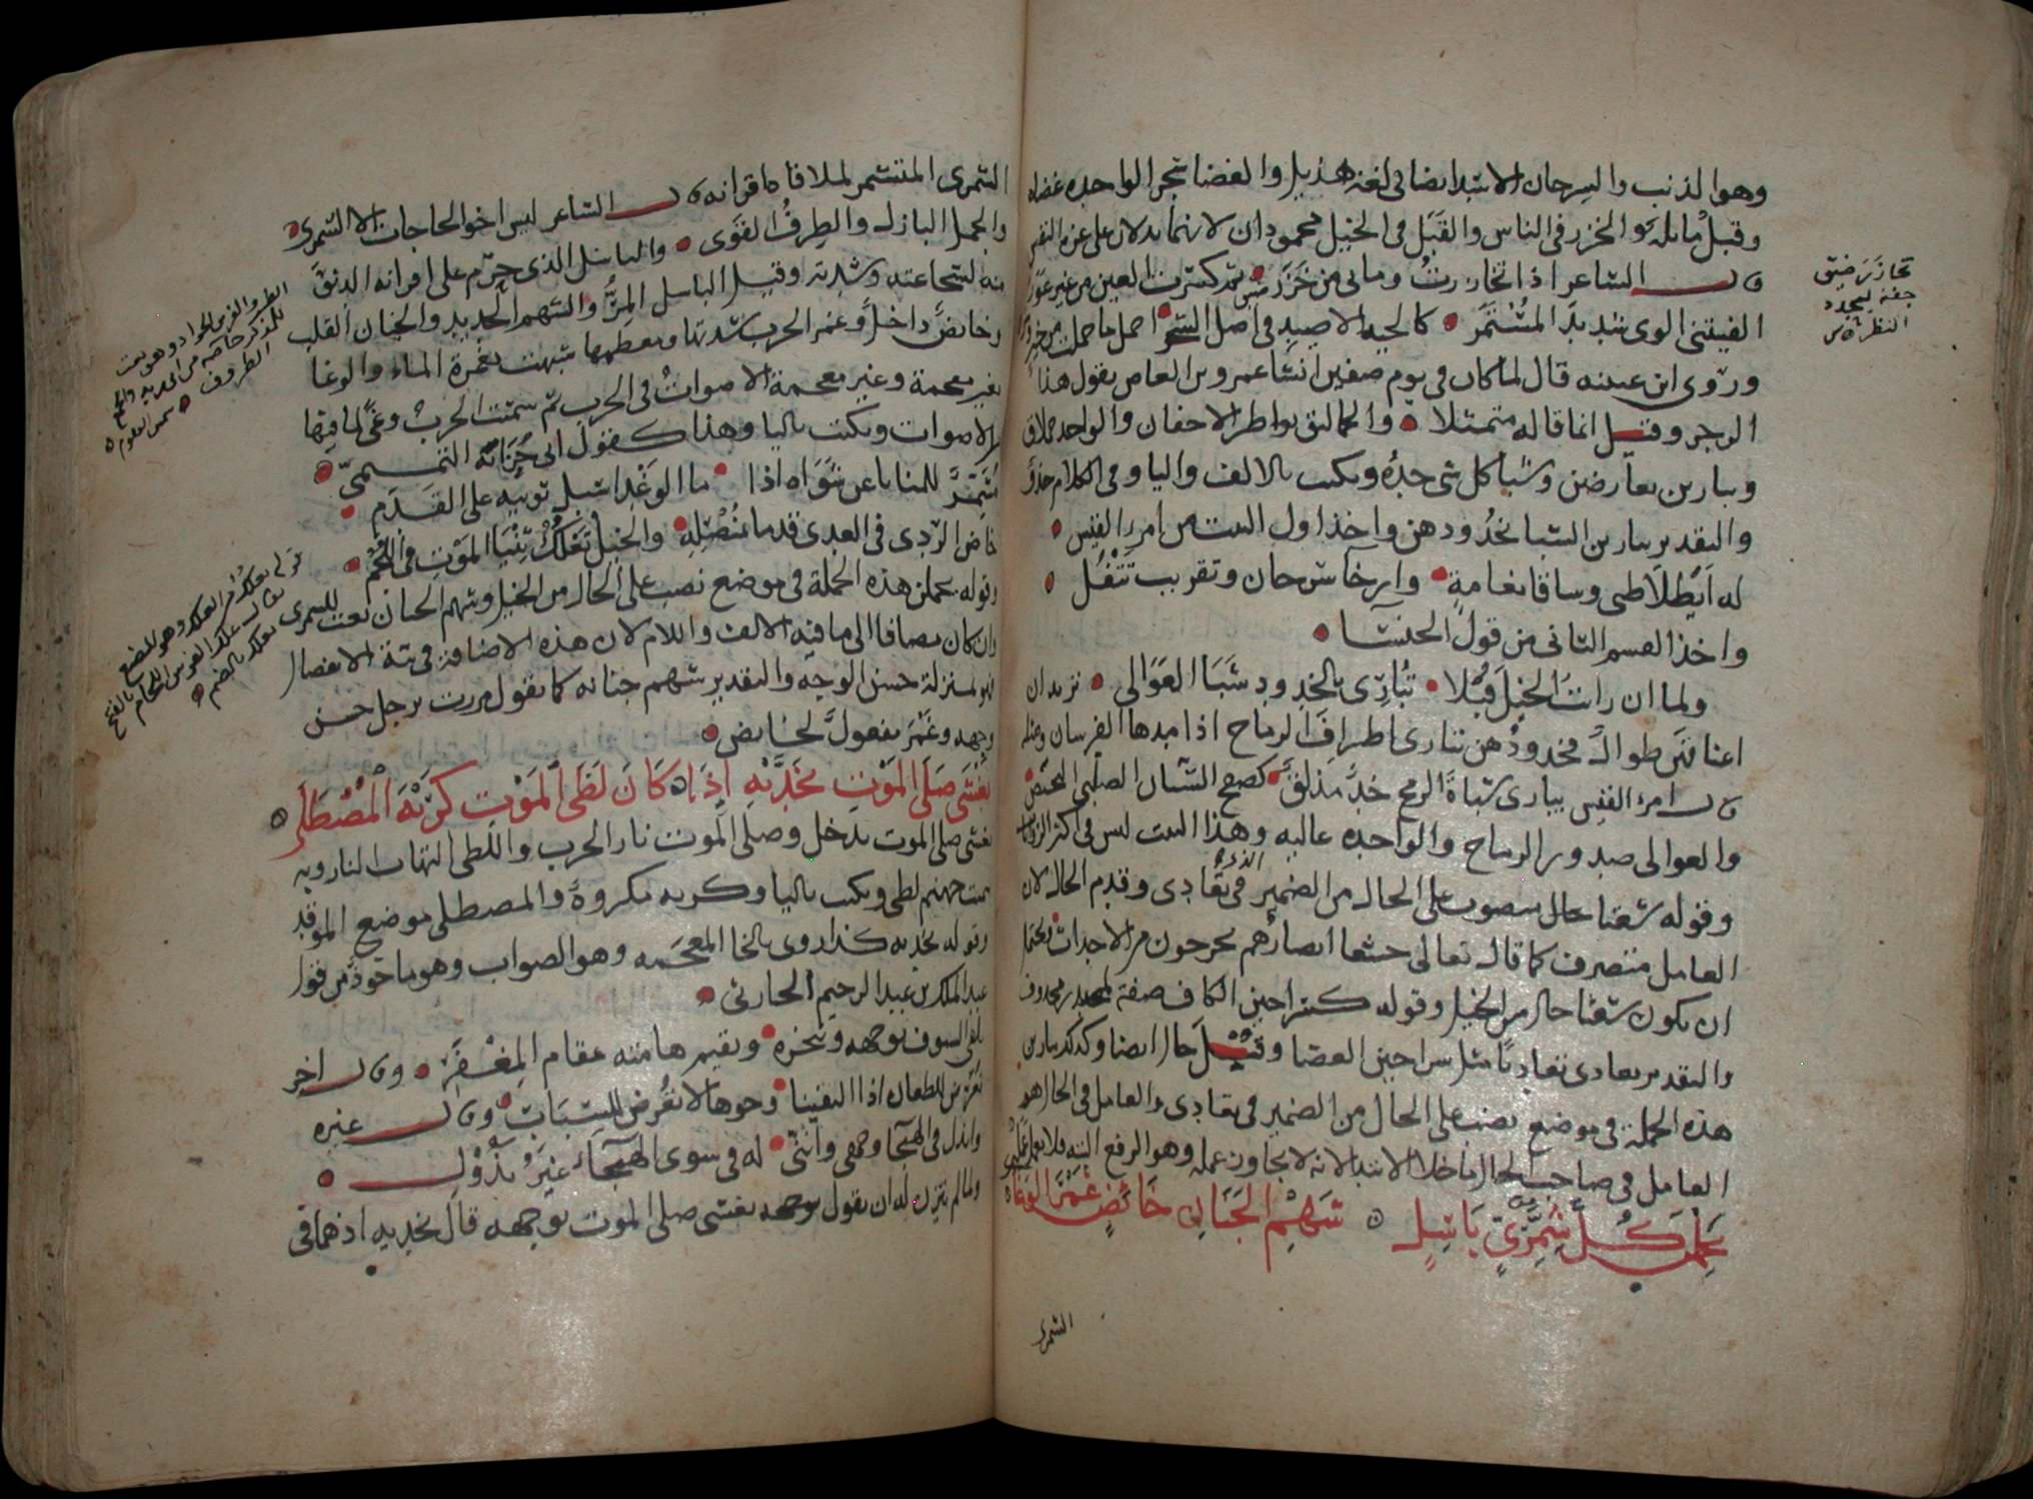 وهو الذئب والسرحان الاسد ايضا في لغة هذيل والغضا شجر الواحده غضاه
وقبل مايلة والخزر في الناس والقبل في الخيل محمودان لانهما يدلان على عزة النفس
قال الشاعر اذا تخازرت وما بي من خزر ثم كسرت العين من غير عور
الفيتني الوى بعيد المستمر كالحية الاصيد في اصل الشجر احمل ما حملت من خير وشر
وروى ابن عيينه قال لما كان في يوم صفين انشا عمرو بن العاص يقول هذا
الرجز وقيل انما قاله متمثلا والحمالق بواطن الاجفان والواحد حملاق
ويبارين يعارضن وشبا كل شي حده ويكتب بالالف واليا وفي الكلام حذف
والتقدير يبارين الشبا بخدودهن واخذ اول البيت من امرء القيس
له ايطلا ظبي وساقا نعامة وارخا سرحان وتقريب تتفل
واخذ القسم الثاني من قول الخنسا
ولما ان رات الخيل قبلا تباري بالخدود شبا العوالي تريد ان
اعناقهن طوال فخدودهن تباري اطراف الرماح اذا مدها الفرسان ومثله
قال امرء القيس يباري شباة الرمح خد مذلق كصفح السنان الصلبي النحيض
والعوالي صدور الرماح والواحده عاليه وهذا البيت ليس في اكثر الروايات
وقوله شعثا حال منصوب على الحال من الضمير الذي في تعادى وقدم الحال لان
العامل متصرف كما قال تعالى خشعا ابصارهم يخرجون من الاجداث يحتمل
ان يكون شعثا حال من الخيل وقوله كسراحين الكاف صفة لمصدر محذوف
والتقدير تعادى تعاديا مثل سراحين الغضا وقبل حال ايضا وكذلك يبارين
هذه الجملة في موضع نصب على الحال من الضمير في تعادى والعامل في الحال هو
العامل في صاحب الحال ما خلا الابتدا لانه لا يجاوز عمله وهو الرفع البتة فلا يعمل عملين
يحملن كل شمري باسل شهم الجنان خائض غمر الوغا
الشمري
تخازر ضيق
جفنه ليحدد
النظر
الشمري المتشمر لملاقاة اقرانه قال الشاعر ليس اخو الحاجات الا الشمري
والجمل البازل والطرف القوى والباسل الذي حرم على اقرانه الدنو
منه لشجاعته وشدته وقيل الباسل المر والشهم الحديد والجنان القلب
وخايض داخل وغمر الحرب شدتها ومعظمها شبهت بغمرة الماء والوغا
بغير معجمة وغير معجمة الاصوات في الحرب ثم سميت الحرب وغى لما فيها
من الاصوات ويكتب باليا وهذا كقول ابي حزابه التميمي
مشمر للمنايا عن شواه اذا ما الوغد اسبل ثوبيه على القدم
خاض الردى في العدى قدما بمنصله والخيل تعلك ثني الموت في اللجم
وقوله يحملن هذه الجملة في موضع نصب على الحال من الخيل وشهم الجنان نعت للشمري
وان كان مضافا الى ما فيه الالف واللام لان هذه الاضافة في نية الانفصال
فهو بمنزلة حسن الوجه والتقدير شهم جنانه كما تقول مررت برجل حسن
وجهه وغمر مفعول لخايض
يغشى صلى الموت بخديه اذا كان لظى الموت كريه المصطلى
يغشى صلى الموت يدخل وصلى الموت نار الحرب واللظى التهاب النار وبه
سميت جهنم لظى ويكتب باليا وكريه مكروه والمصطلى موضع الموقد
وقوله بخديه كذا روى بالخا المعجمه وهو الصواب وهو ماخوذ من قول
عبد الملك بن عبد الرحيم الحارثي
يلقى السيوف بوجهه وبنحره ويقيم هامته مقام المغفر وقال اخر
نعرض للطعان اذا التقينا وجوها لا تعرض للسباب وقال غيره
وابذل في الهيجا وجهي وانني له في سوى الهيجاء غير بذول
ولما لم يتزن له ان يقول بوجهه يغشى صلى الموت بوجهه قال بخديه اذ هما في